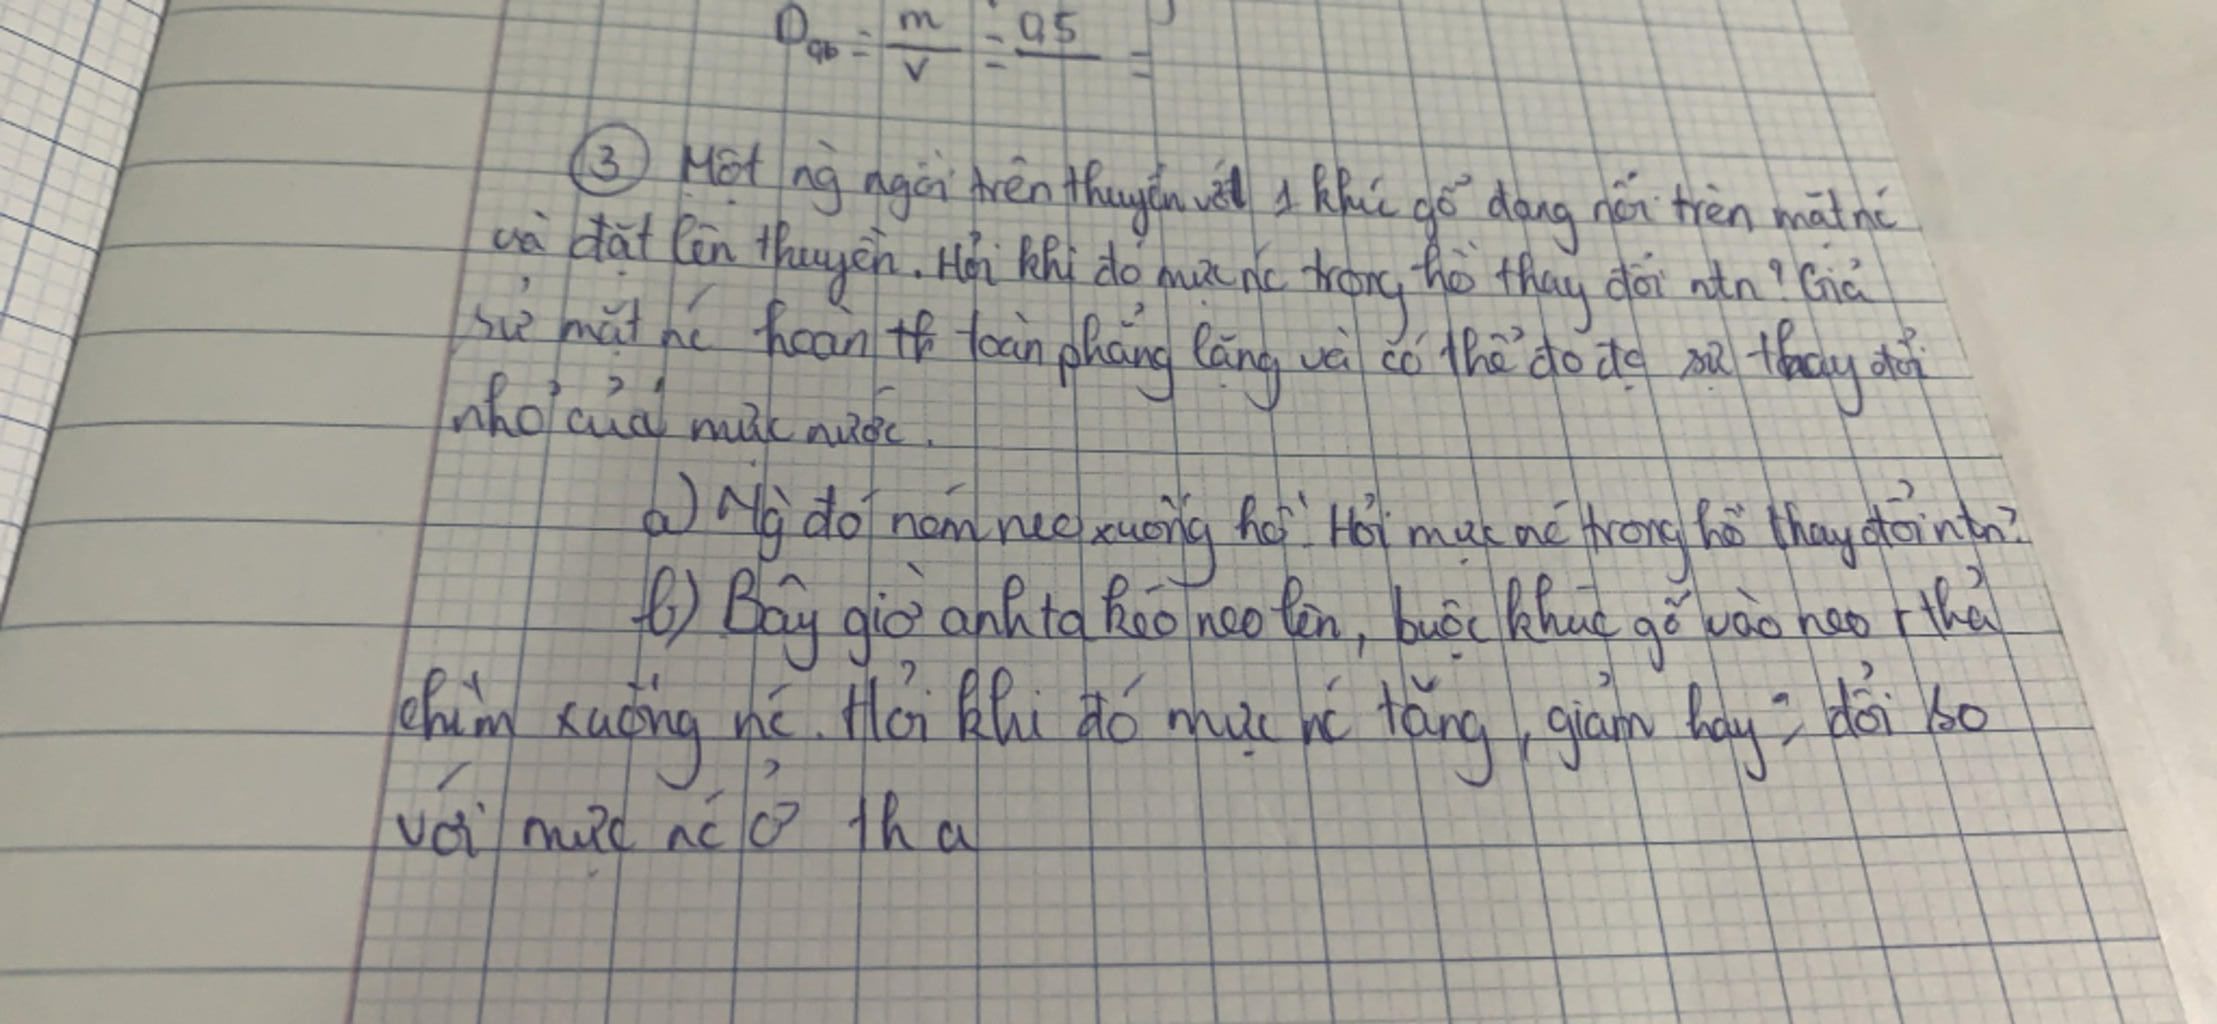 D = m/v = 0,5/ =
③ Một ng ngồi trên thuyền vớt 1 khúc gỗ đang nổi trên mặt nc
và đặt lên thuyền. Hỏi khi đó mực nc trong hồ thay đổi ntn? Giả
sử mặt nc hoàn th toàn phẳng lặng và có thể đo đc sự thay đổi
nhỏ của mực nước.
a) Ng đó ném neo xuống hồ. Hỏi mực nc trong hồ thay đổi ntn?
b) Bây giờ anh ta kéo neo lên, buộc khúc gỗ vào neo r thả
chìm xuống nc. Hỏi khi đó mực nc tăng, giảm hay đổi so
với mực nc ở th a